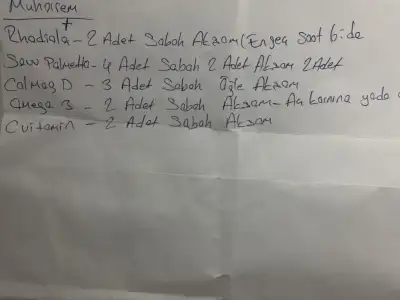 Muharrem
+
Rhodiola - 2 Adet Sabah Akşam (En geç saat 6:da
Saw Palmetto - 4 Adet Sabah 2 Adet Akşam 2 Adet
CalMag D - 3 Adet Sabah Öğle Akşam
Omega 3 - 2 Adet Sabah Akşam - Aç karnına yada
Cvitamin - 2 Adet Sabah Akşam